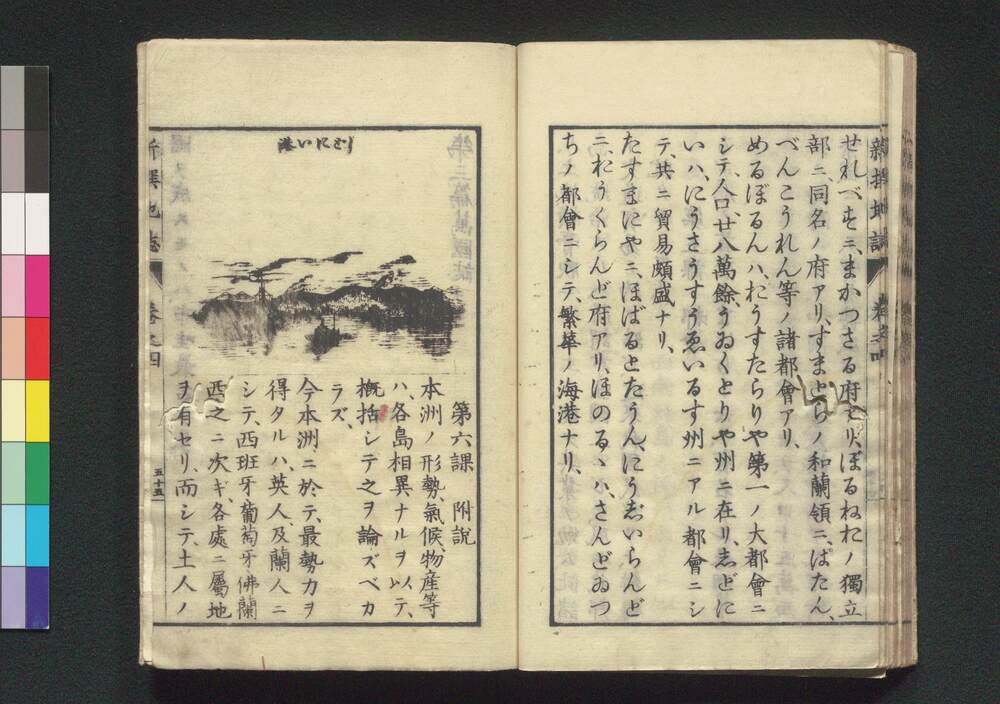 新撰地誌 卷之四
せれべすニ、まかつさる府アリ、ぼるねおノ獨立
部ニ、同名ノ府アリ、すまとらノ和蘭領ニ、ぱたん、
べんこうれん等ノ諸都會アリ、
めるぼるんハ、おうすたらりや第一ノ大都會ニ
シテ、人口廿八萬餘、うゐくとりや州ニ在リ、しどに
いハ、にうさうすうゑいるす州ニアル都會ニシ
テ、共ニ貿易頗盛ナリ、
たすまにやニ、ほばるとたうん、にうじいらんど
ニ、おうくらんど府アリ、ほのるゝハ、さんどゐつ
ちノ都會ニシテ、繁華ノ海港ナリ、
しどにい港
第六課 附說
本洲ノ形勢、氣候、物產等
ハ、各島相異ナルヲ以テ、
概括シテ之ヲ論ズベカ
ラズ、
今本洲ニ於テ、最勢力ヲ
得タルハ、英人及蘭人ニ
シテ、西班牙葡萄牙佛蘭
西之ニ次ギ、各處ニ屬地
ヲ有セリ、而シテ、土人ノ
新撰地誌 卷之四 五十五